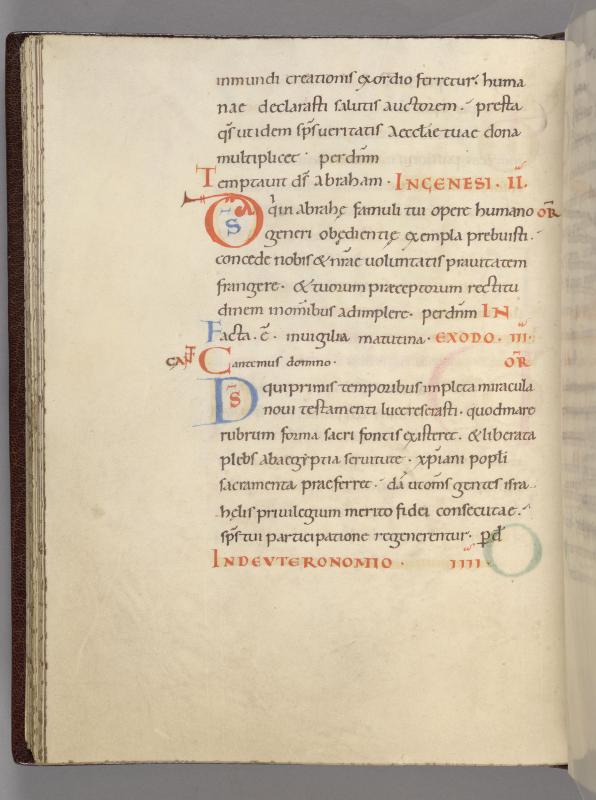 inmundi creationis exordio ferretur. huma
nae declarasti salutis auctorem. presta
qs̄ ut idem sp̄s ueritatis Aecclāe tuae dona
multiplicet. per dn̄m
Temptauit ds̄ Abraham. IN GENESI. II.
Ds̄ qui in abrahę famuli tui opere humano OR̄
generi obędientię exempla prebuisti.
concede nobis & nr̄ae uoluntatis prauitatem
frangere. & tuorum praeceptorum rectitu
dinem in om̄ibus adimplere. per dn̄m IN
Facta. ē. in uigilia matutina. EXODO. III.
CAN̄T Cantemus domino. OR̄
Ds̄ qui primis temporibus impleta miracula
noui testamenti luce reserasti. quod mare
rubrum forma sacri fontis existeret. & liberata
plebs ab aegyptia seruitute. xp̄iani popl̄i
sacramenta praeferret. dā ut om̄s gentes isra
hęlis priuilegium merito fidei consecutae.
sp̄s tui participatione regenerentur. p̄ d̄
IN DEVTERONOMIO. IIII. O